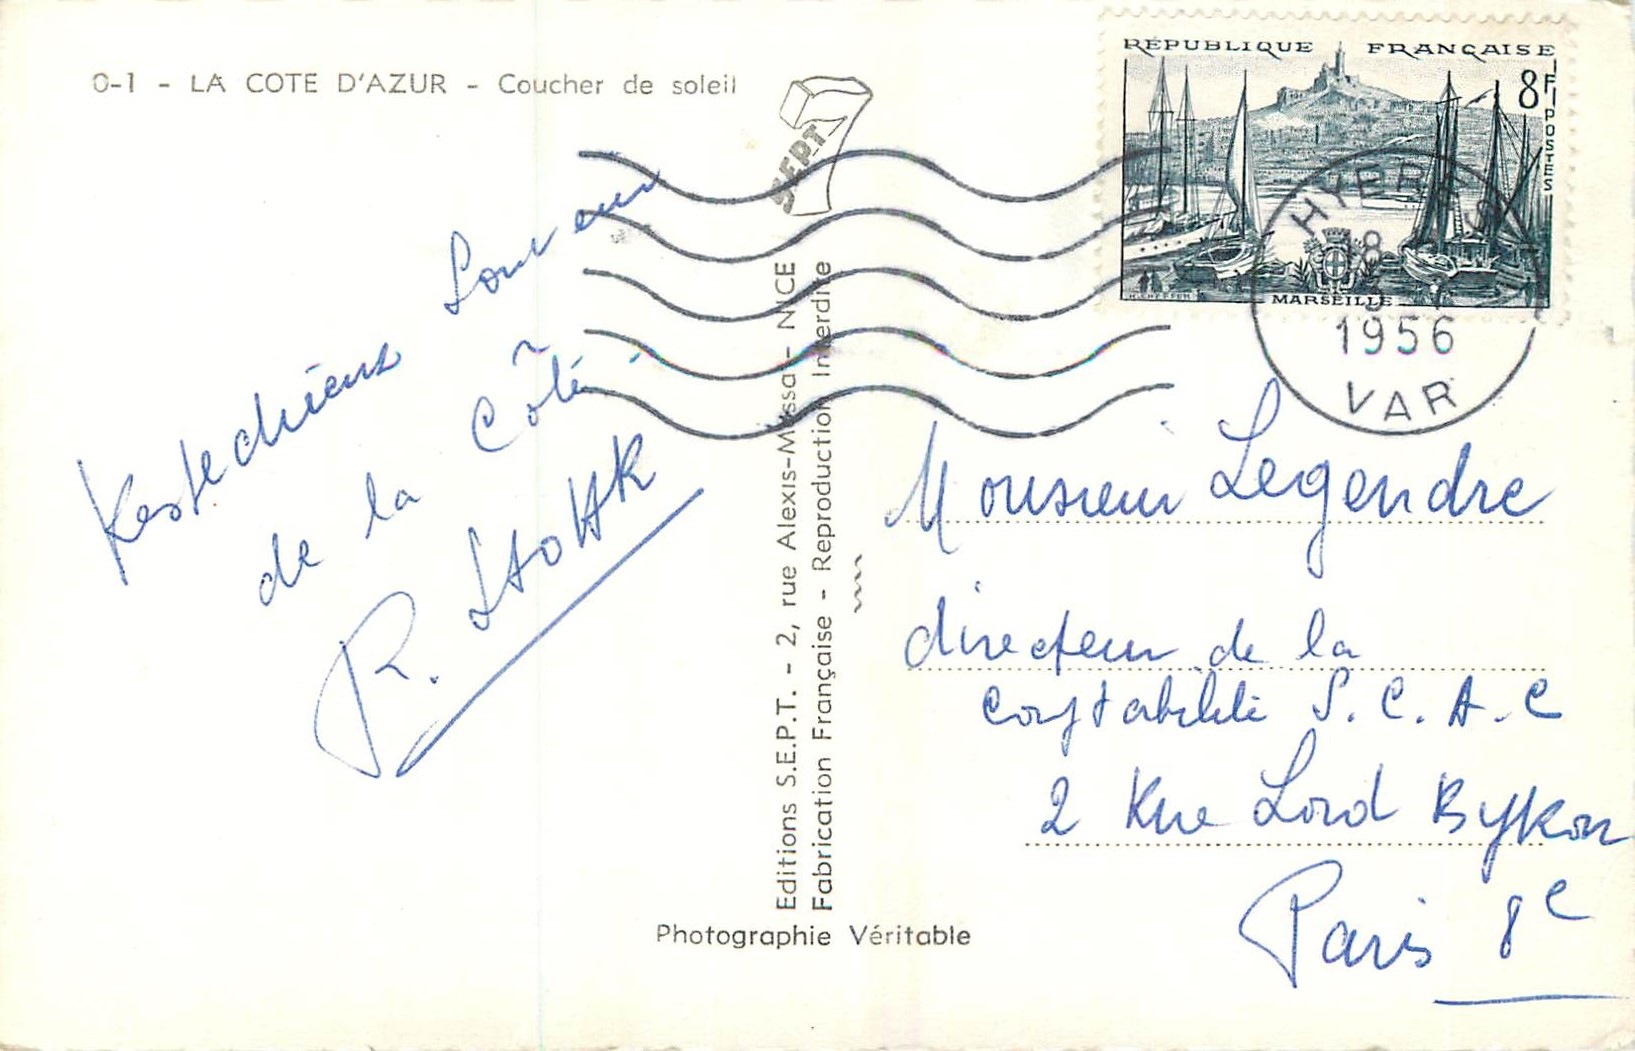 0-1 - LA COTE D'AZUR - Coucher de soleil
SEPT
RÉPUBLIQUE FRANÇAISE
8F
POSTES
MARSEILLE
HYERES
18
1956
VAR
souvenir
de la Côte.
R.
Editions S.E.P.T. - 2, rue Alexis-Mossa - NICE
Fabrication Française - Reproduction Interdite
Photographie Véritable
Monsieur Legendre
directeur de la
Comptabilité S.C.A.C
2 Rue Lord Byron
Paris 8e